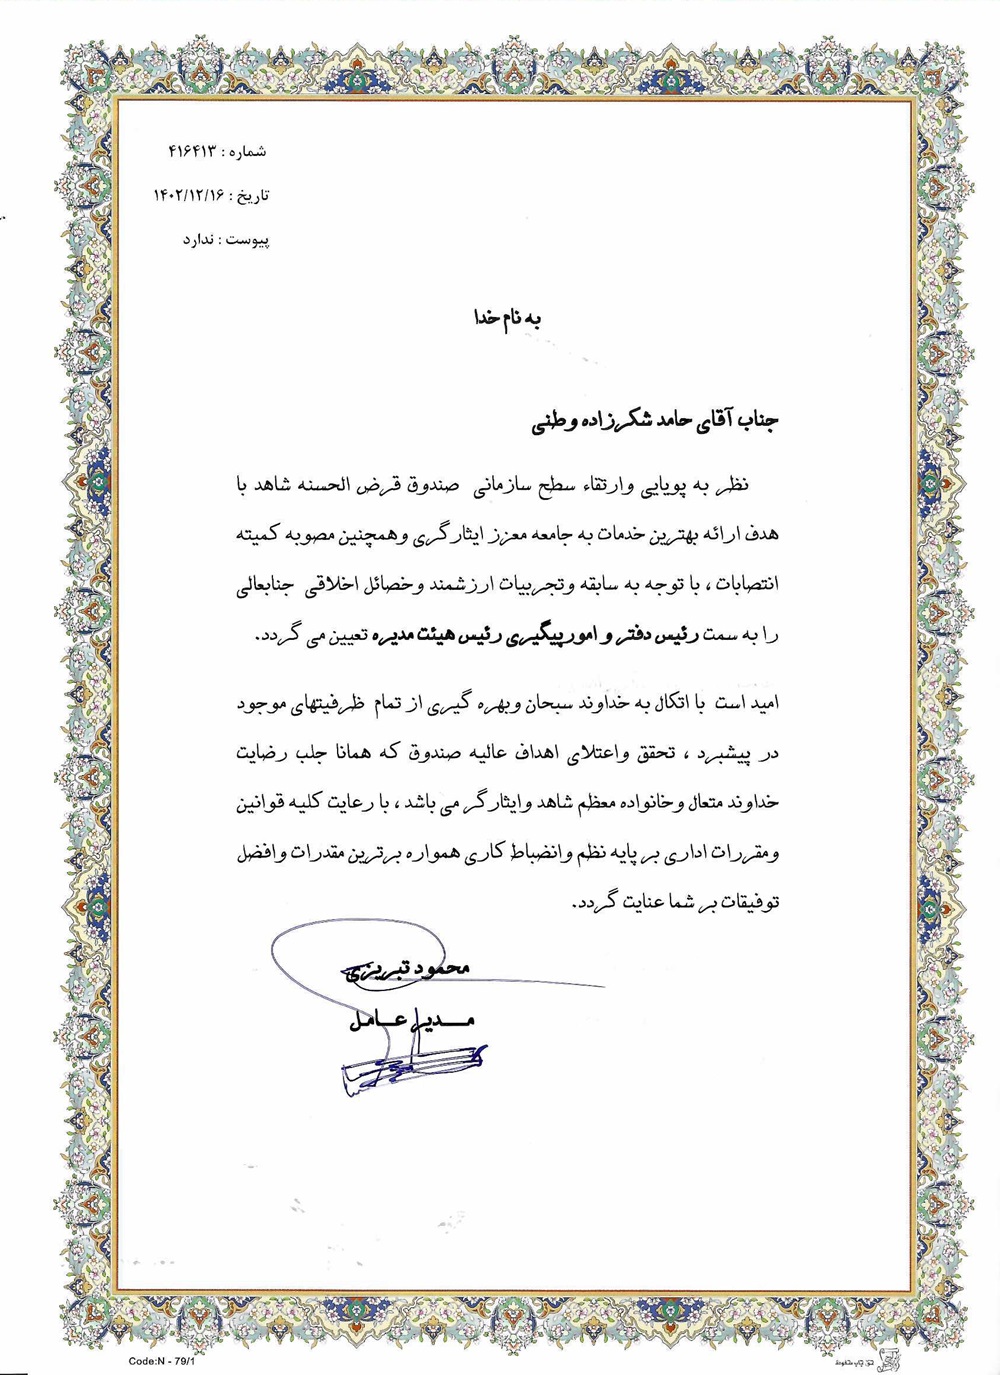 شماره : ۴۱۶۴۱۳
تاریخ : ۱۴۰۲/۱۲/۱۶
پیوست : ندارد
به نام خدا
جناب آقای حامد شکرزاده وطنی
نظر به پویایی وارتقاء سطح سازمانی صندوق قرض الحسنه شاهد با
هدف ارائه بهترین خدمات به جامعه معزز ایثارگری وهمچنین مصوبه کمیته
انتصابات ، با توجه به سابقه وتجربیات ارزشمند وخصائل اخلاقی جنابعالی
را به سمت رئیس دفتر و امورپیگیری رئیس هیئت مدیره تعیین می گردد.
امید است با اتکال به خداوند سبحان وبهره گیری از تمام ظرفیتهای موجود
در پیشبرد ، تحقق واعتلای اهداف عالیه صندوق که همانا جلب رضایت
خداوند متعال وخانواده معظم شاهد وایثارگر می باشد ، با رعایت کلیه قوانین
ومقررات اداری بر پایه نظم وانضباط کاری همواره برترین مقدرات وافضل
توفیقات بر شما عنایت گردد.
محمود تبریزی
مدیر عامل
Code:N - 79/1